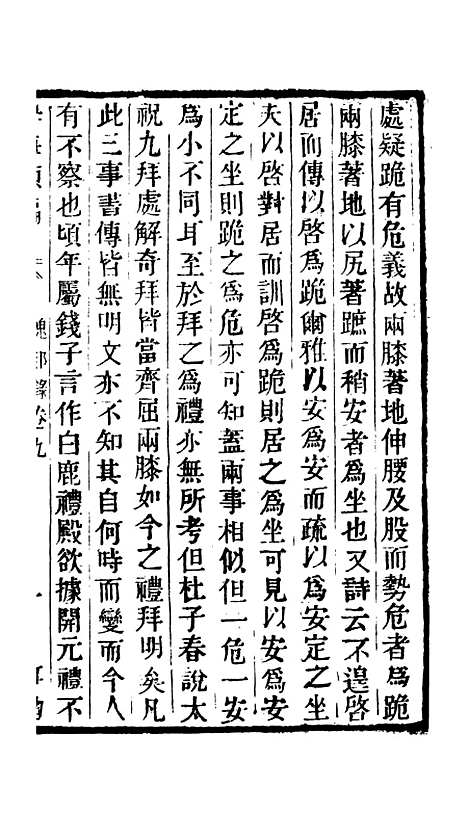 處疑跪有危義故兩膝著地伸腰及股而勢危者爲跪
兩膝著地以尻著蹠而稍安者爲坐也又詩云不遑啓
居而傳以啓爲跪爾雅以安爲安而疏以爲安定之坐
夫以啓對居而訓啓爲跪則居之爲坐可見以安爲安
定之坐則跪之爲危亦可知蓋兩事相似但一危一安
爲小不同耳至於拜之爲禮亦無所考但杜子春說太
祝九拜處解奇拜皆當齊屈兩膝如今之禮拜明矣凡
此三事書傳皆無明文亦不知其自何時而變而今人
有不察也頃年屬錢子言作白鹿禮殿欲據開元禮不
卷九